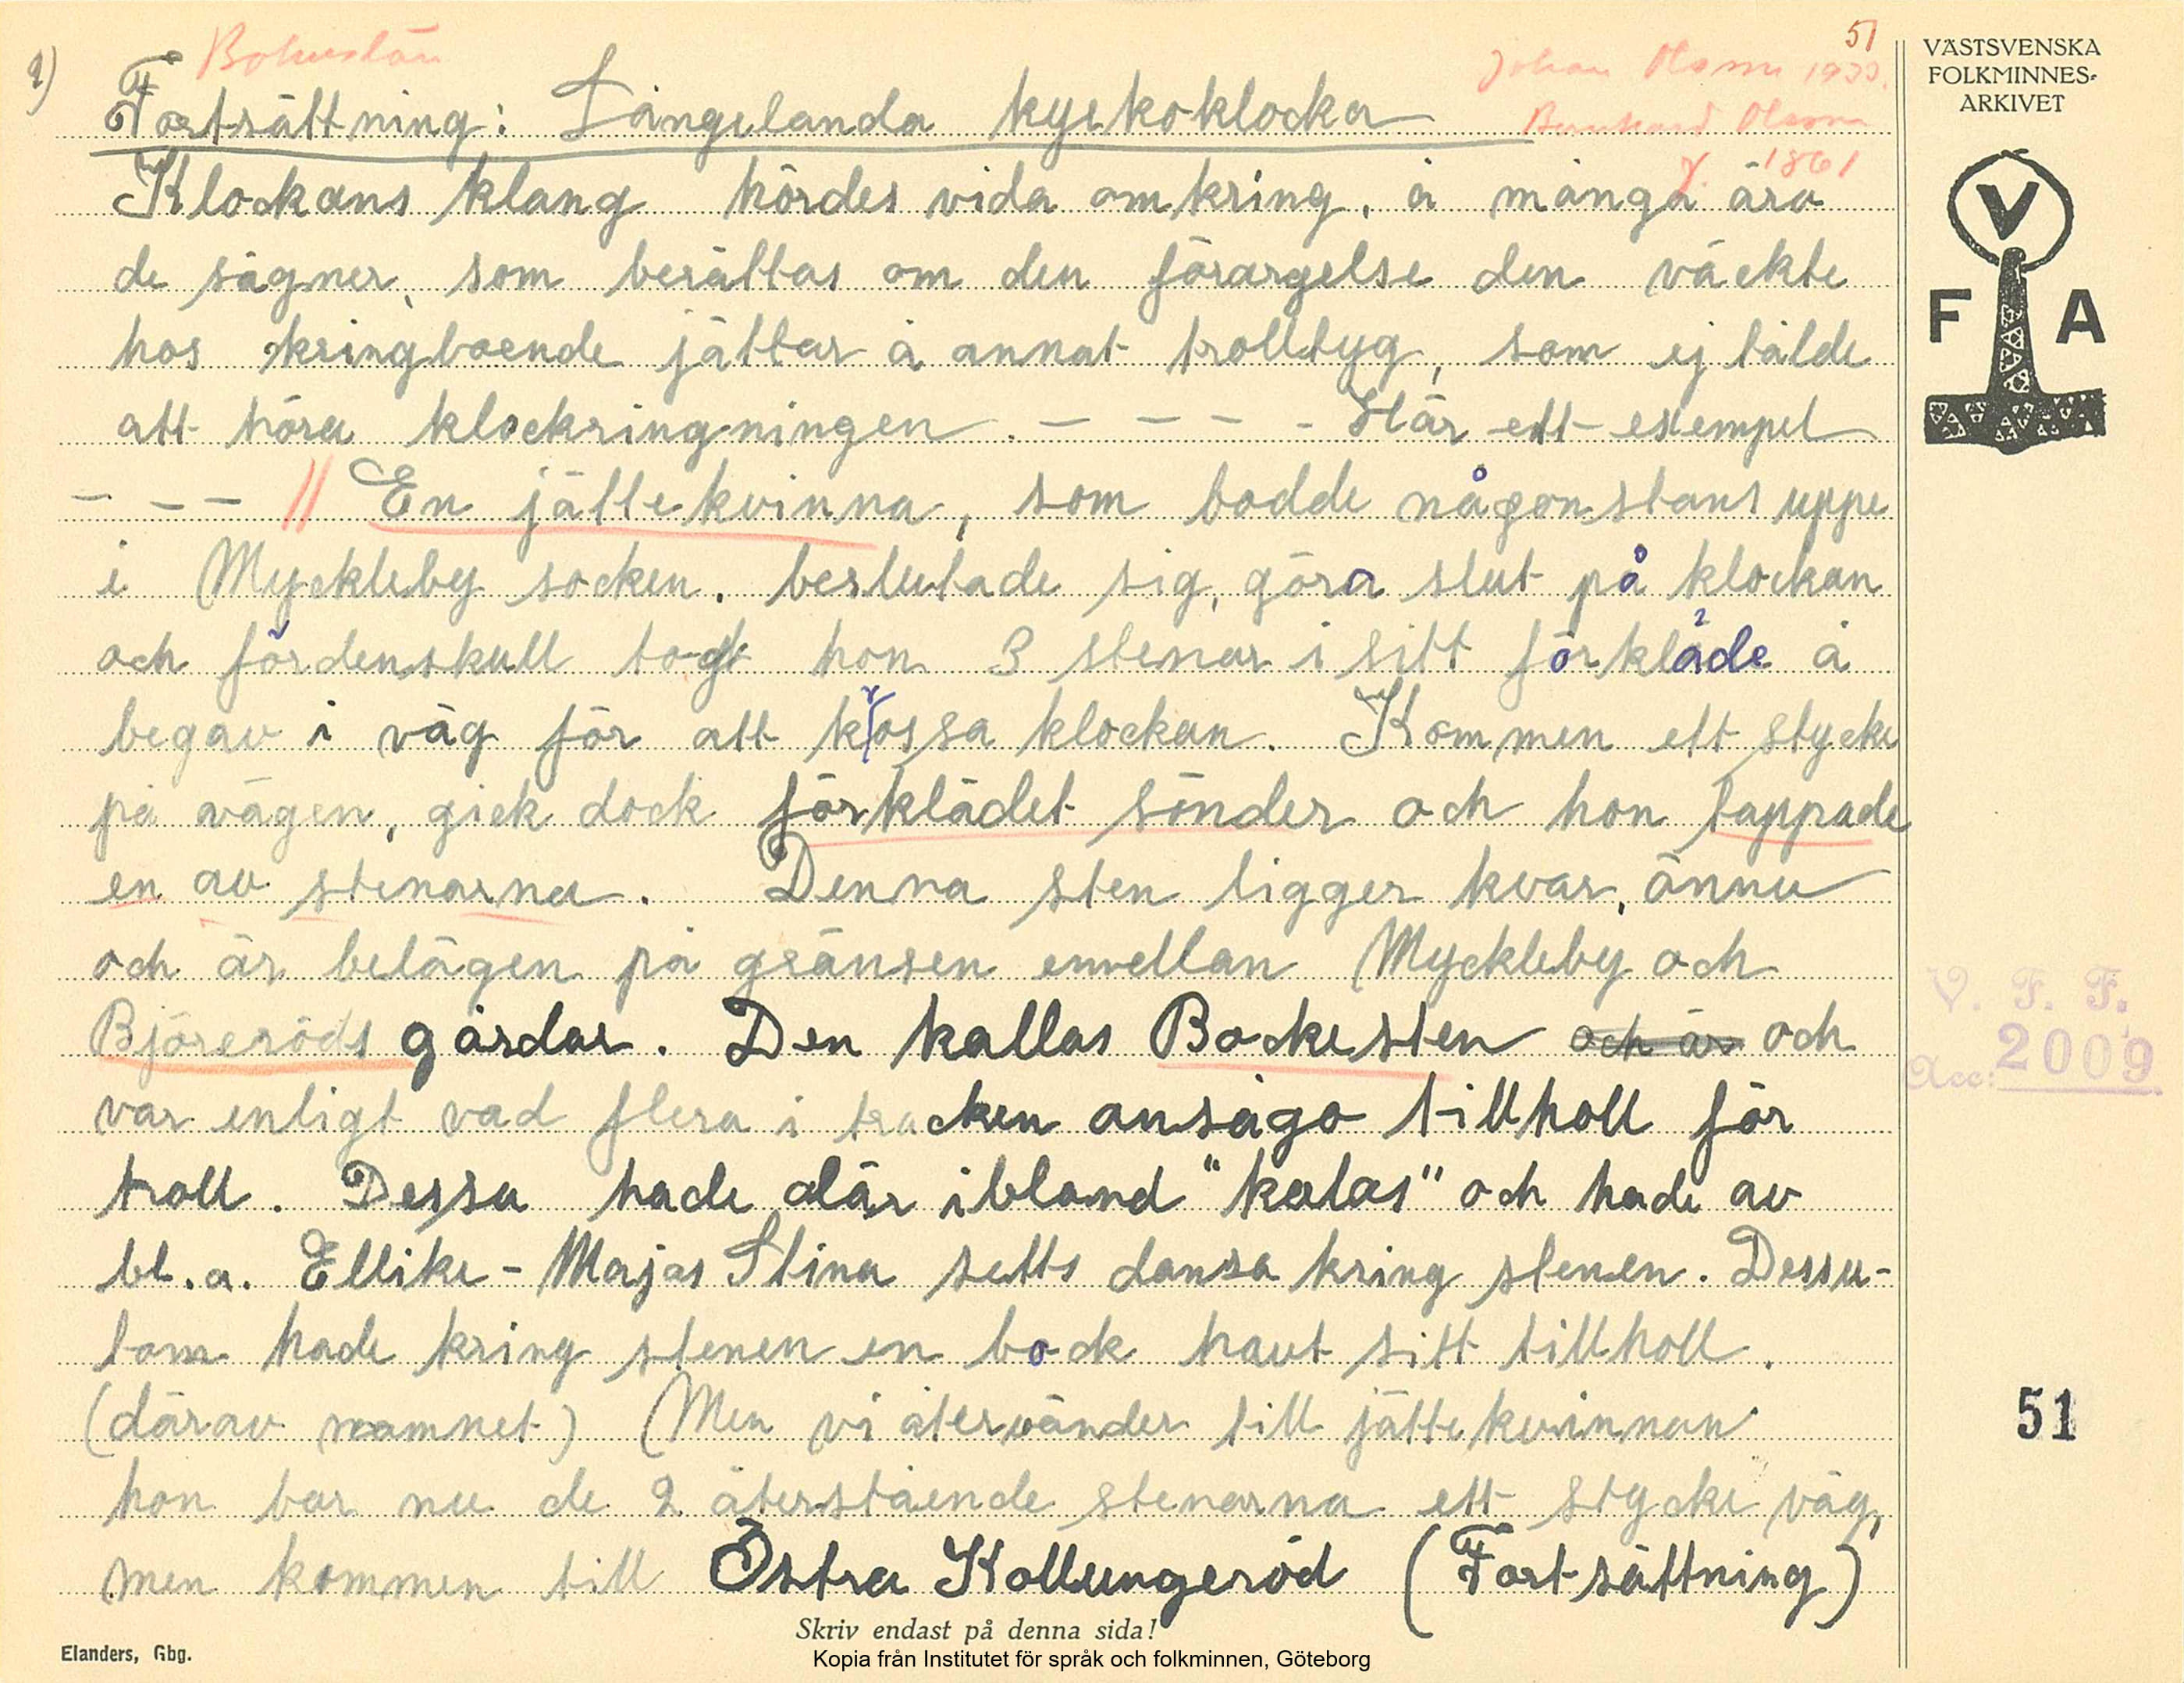 2)
Bohuslän
51
Johan Olsson 1933.
Bernhard Olsson
f. 1861
Fortsättning: Långelanda kyrkoklocka
Klockans klang hördes vida omkring, å många äro
de sägner, som berättas om den förargelse den väckte
hos kringboende jättar å annat trolltyg, som ej tålde
att höra klockringningen. - - - - Här ett exempel
- - - // En jättekvinna, som bodde någonstans uppe
i Myckleby socken, beslutade sig, göra slut på klockan
och fördenskull tog hon 3 stenar i sitt förkläde å
begav i väg för att krossa klockan. Kommen ett stycke
på vägen, gick dock förklädet sönder och hon tappade
en av stenarna. Denna sten ligger kvar, ännu
och är belägen på gränsen emellan Myckleby och
Björeröds gårdar. Den kallas Bockesten och är och
var enligt vad flera i tracken ansågo tillholl för
troll. Dessa hade där ibland "kalas" och hade av
bl.a. Ellike-Majas Stina setts dansa kring stenen. Dessu-
tom hade kring stenen en bock havt sitt tillholl.
(därav namnet) (Men vi återvänder till jättekvinnan
hon bar nu de 2 återstående stenarna ett stycke väg,
men kommen till Östra Kollungeröd (Fortsättning)
Skriv endast på denna sida!
Elanders, Gbg.
Kopia från Institutet för språk och folkminnen, Göteborg
VÄSTSVENSKA
FOLKMINNES-
ARKIVET
V
F A
V. F. F.
Acc: 2009
51